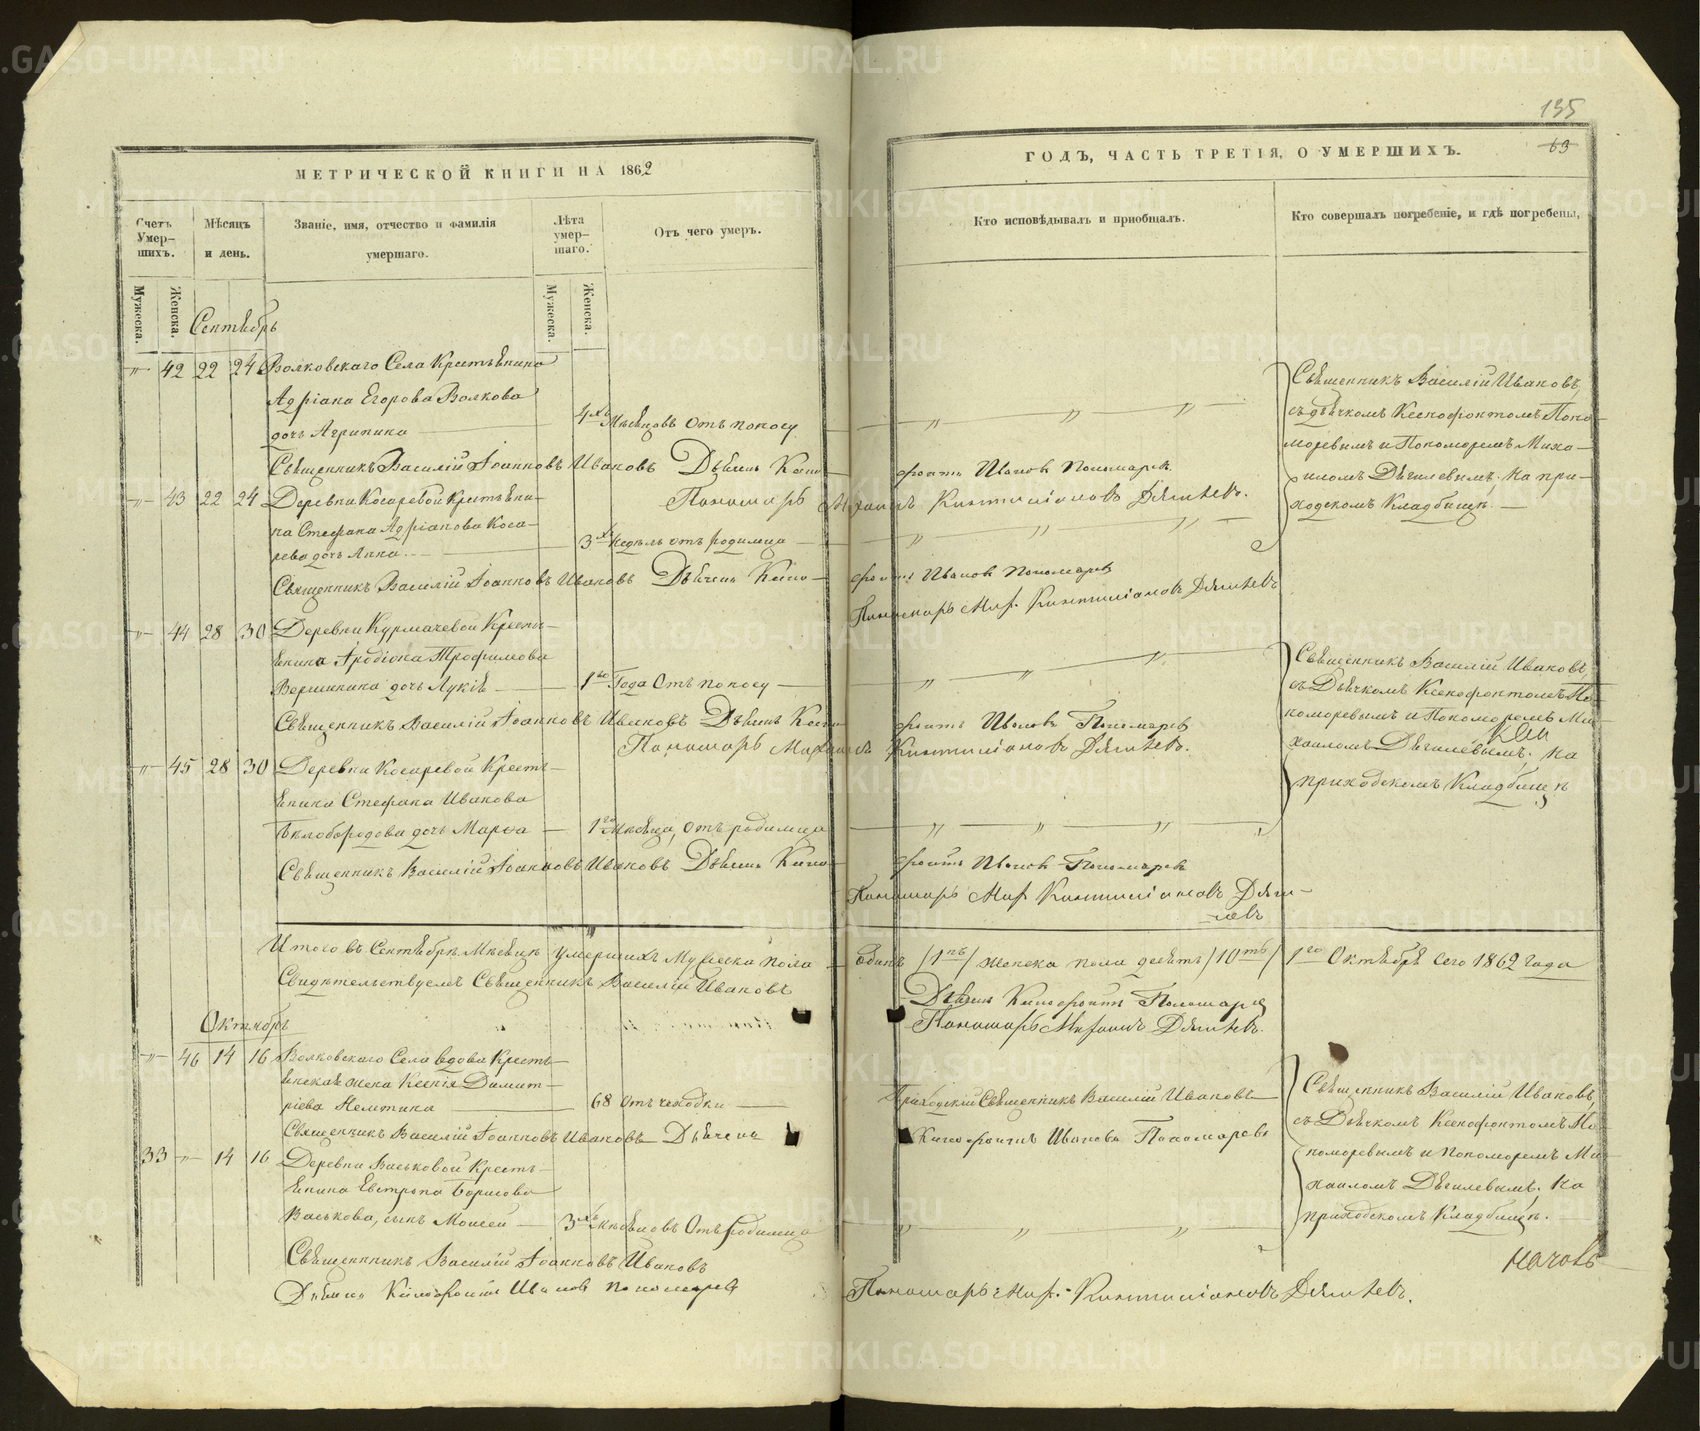 135
63
МЕТРИЧЕСКОЙ КНИГИ НА 1862
ГОДЪ, ЧАСТЬ ТРЕТІЯ, О УМЕРШИХЪ.
Счетъ Умер-шихъ.
Мѣсяцъ и день.
Званіе, имя, отчество и фамилія умершаго.
Лѣта умер-шаго.
Отъ чего умеръ.
Кто исповѣдывалъ и пріобщалъ.
Кто совершалъ погребеніе, и гдѣ погребены,
Мужеска.
Женска.
Мужеска.
Женска.
Сентябрь
42 22 24 Волковскаго Села Крестьянина
Адріана Егорова Волкова
дочь Агрипина
4хъ Мѣсяцовъ Отъ поносу
Священникъ Василій Ивановъ
съ дьячкомъ Ксенофонтомъ Поно-
моревымъ и Пономоремъ Миха-
иломъ Дягилевымъ, На при-
ходскомъ Кладбищѣ.
Священникъ Василій Іоанновъ Ивановъ Дьячекъ Ксено-фонтъ Ивановъ Пономаревъ
Пономарь Михаилъ Дягилевъ.
43 22 24 Деревни Косаревой Крестьяни-
на Стефана Адріанова Коса-
рева дочь Анна
3хъ Недѣль отъ родимца
Священникъ Василій Іоанновъ Ивановъ Дьячекъ Ксено-фонтъ Ивановъ Пономаревъ
Пономарь Мих. Дягилевъ
44 28 30 Деревни Курмачевой Кресть-
янина Іродіона Трофимова
Вершинина дочь Лукія
1го Года Отъ поносу
Священникъ Василій Ивановъ
съ Дьячкомъ Ксенофонтомъ По-
номоревымъ и Пономоремъ Ми-
хаиломъ Дягилевымъ, На
приходскомъ Кладбищѣ
Священникъ Василій Іоанновъ Ивановъ Дьячекъ Ксено-фонтъ Ивановъ Пономаревъ
Пономарь Михаилъ Дягилевъ.
45 28 30 Деревни Косаревой Кресть-
янина Стефана Иванова
Бѣлобородова дочь Марѳа
1го Мѣсяца, Отъ родимца
Священникъ Василій Іоанновъ Ивановъ Дьячекъ Ксено-фонтъ Ивановъ Пономаревъ
Пономарь Мих. Дяги-
левъ
Итого въ Сентябрѣ Мѣсяцѣ умершихъ Мужеска пола одинъ /1нъ/ женска пола десять /10ть/ 1го Октября сего 1862 года
Свидѣтельствуемъ Священникъ Василій Ивановъ
Дьячекъ Ксенофонтъ Пономаревъ
Пономарь Михаилъ Дягилевъ.
Октябрь
46 14 16 Волковскаго Села вдова Кресть-
янская жена Ксенія Димит-
ріева Немтина
68 Отъ чахотки
Приходскій Священникъ Василій Ивановъ
Священникъ Василій Ивановъ
съ Дьячкомъ Ксенофонтомъ По-
номоревымъ и Пономоремъ Ми-
хаиломъ Дягилевымъ, На
приходскомъ Кладбищѣ.
Священникъ Василій Іоанновъ Ивановъ Дьячекъ Ксенофонтъ Ивановъ Пономаревъ
33 14 16 Деревни Васьковой Кресть-
янина Евстропа Борисова
Васькова, сынъ Моисей
3хъ Мѣсяцовъ Отъ родимца
Священникъ Василій Іоанновъ Ивановъ
Дьячекъ Ксенофонтъ Ивановъ Пономаревъ
Пономарь Мих. Дягилевъ.